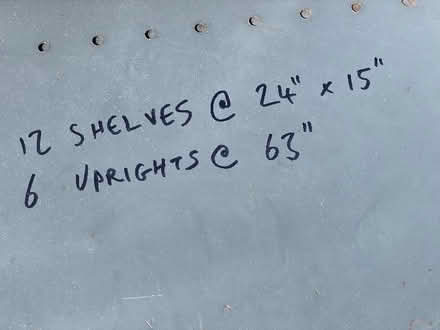 12 SHELVES @ 24" x 15"
6 UPRIGHTS @ 63"